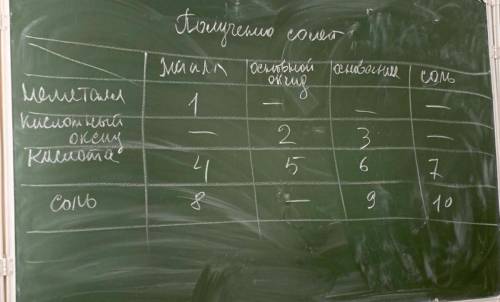 Получение солей
металл основной оксид основание соль
неметалл 1 — — —
кислотный оксид — 2 3 —
кислота 4 5 6 7
соль 8 — 9 10